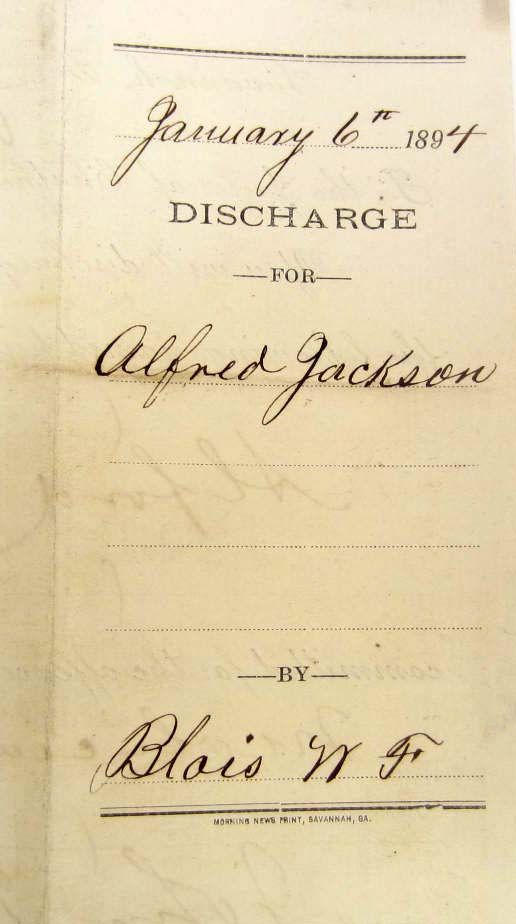 January 6th 1894
DISCHARGE
—FOR—
Alfred Jackson
—BY—
Blois W F
MORNING NEWS PRINT, SAVANNAH, GA.